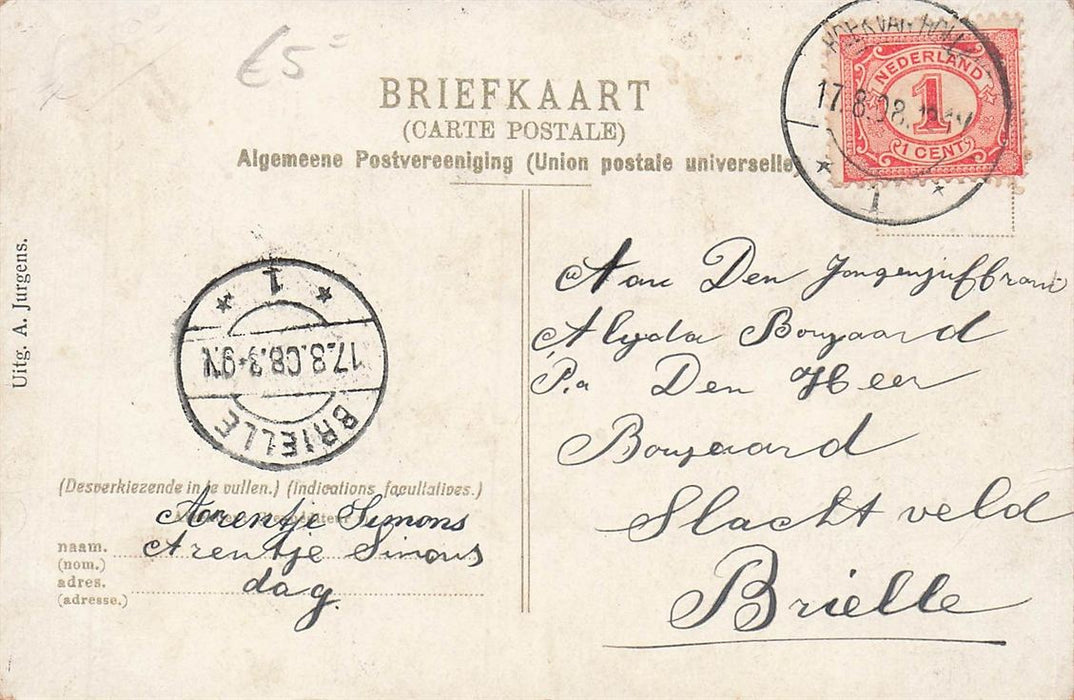 €5=
BRIEFKAART
(CARTE POSTALE)
Algemeene Postvereeniging (Union postale universelle)
HOEK VAN HOLLAND
17.8.08.
1
NEDERLAND
1
1 CENT
Uitg. A. Jurgens.
1
17.8.08.3-9V.
BRIELLE
Aan Den Jongenjuffrouw
Alyda Boogaard
P.a Den Heer
Boogaard
Slachtveld
Brielle
(Desverkiezende in te vullen.) (Indications facultatives.)
Aorentje Simons
naam. Arentje Simons
(nom.)
adres. dag.
(adresse.)